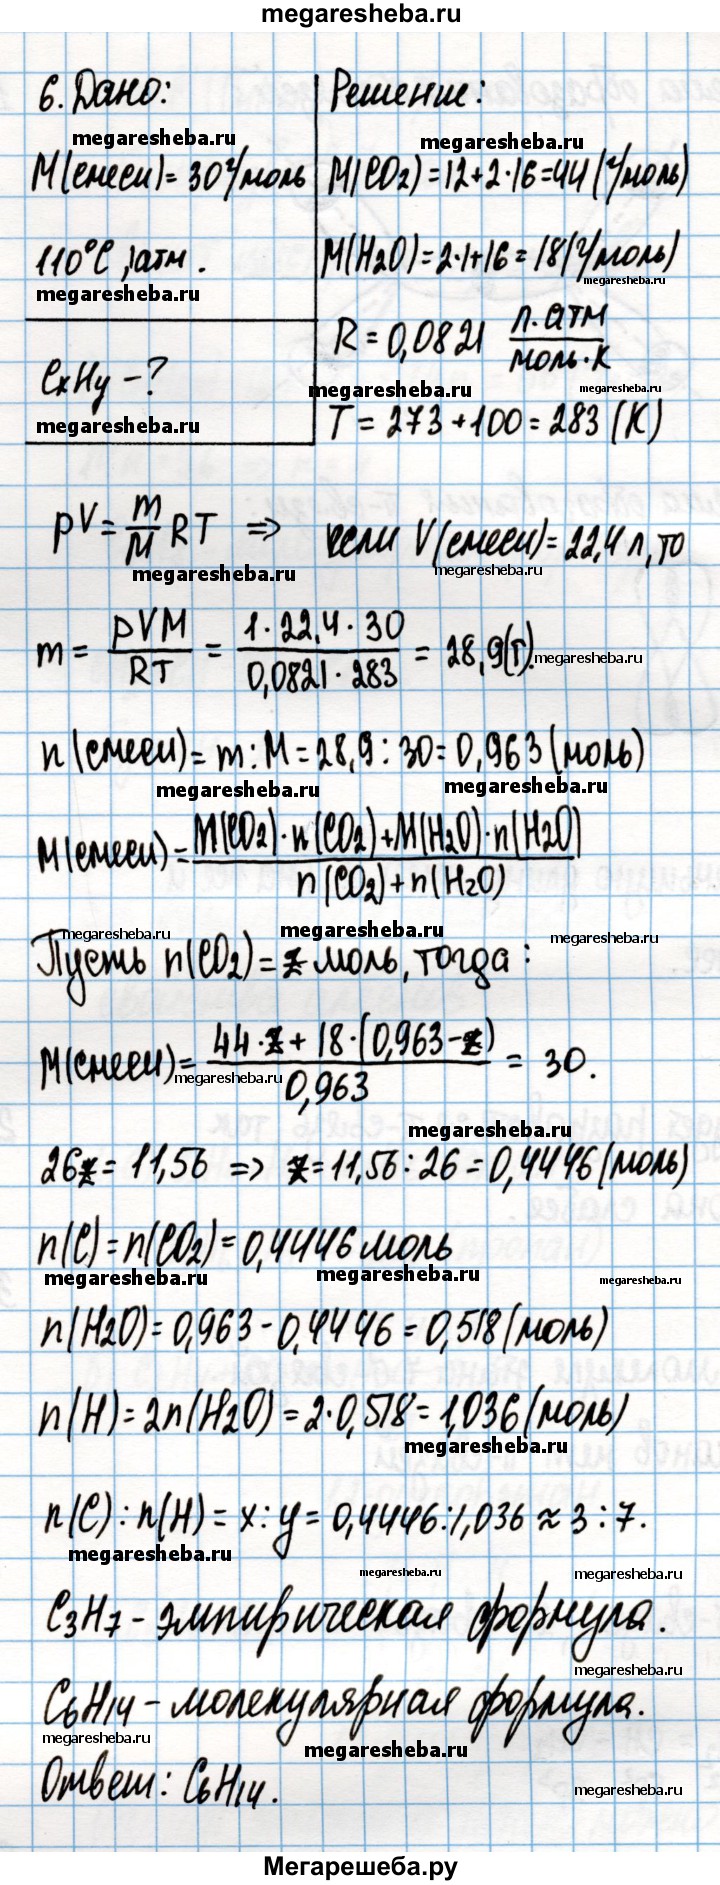 megaresheba.ru
6. Дано:
Решение:
megaresheba.ru
megaresheba.ru
M(смеси) = 30 г/моль
M(CO₂) = 12 + 2·16 = 44 (г/моль)
110°C, 1 атм.
M(H₂O) = 2·1 + 16 = 18 (г/моль)
megaresheba.ru
megaresheba.ru
R = 0,0821 л·атм / моль·К
CxHy - ?
megaresheba.ru
megaresheba.ru
megaresheba.ru
T = 273 + 100 = 283 (К)
pV = m/M RT ⇒ если V(смеси) = 22,4 л, то
megaresheba.ru
megaresheba.ru
m = pVM / RT = 1·22,4·30 / 0,0821·283 = 28,9 (г).
megaresheba.ru
n(смеси) = m : M = 28,9 : 30 = 0,963 (моль)
megaresheba.ru
megaresheba.ru
M(смеси) = M(CO₂)·n(CO₂) + M(H₂O)·n(H₂O) / n(CO₂) + n(H₂O)
megaresheba.ru
megaresheba.ru
megaresheba.ru
Пусть n(CO₂) = z моль, тогда:
M(смеси) = 44·z + 18·(0,963 - z) / 0,963 = 30.
megaresheba.ru
megaresheba.ru
26z = 11,56 ⇒ z = 11,56 : 26 = 0,4446 (моль)
n(C) = n(CO₂) = 0,4446 моль
megaresheba.ru
megaresheba.ru
megaresheba.ru
n(H₂O) = 0,963 - 0,4446 = 0,518 (моль)
n(H) = 2n(H₂O) = 2·0,518 = 1,036 (моль)
megaresheba.ru
n(C) : n(H) = x : y = 0,4446 : 1,036 ≈ 3 : 7.
megaresheba.ru
megaresheba.ru
megaresheba.ru
C₃H₇ - эмпирическая формула.
megaresheba.ru
C₆H₁₄ - молекулярная формула.
megaresheba.ru
megaresheba.ru
Ответ: C₆H₁₄.
megaresheba.ru
Мегарешеба.ру